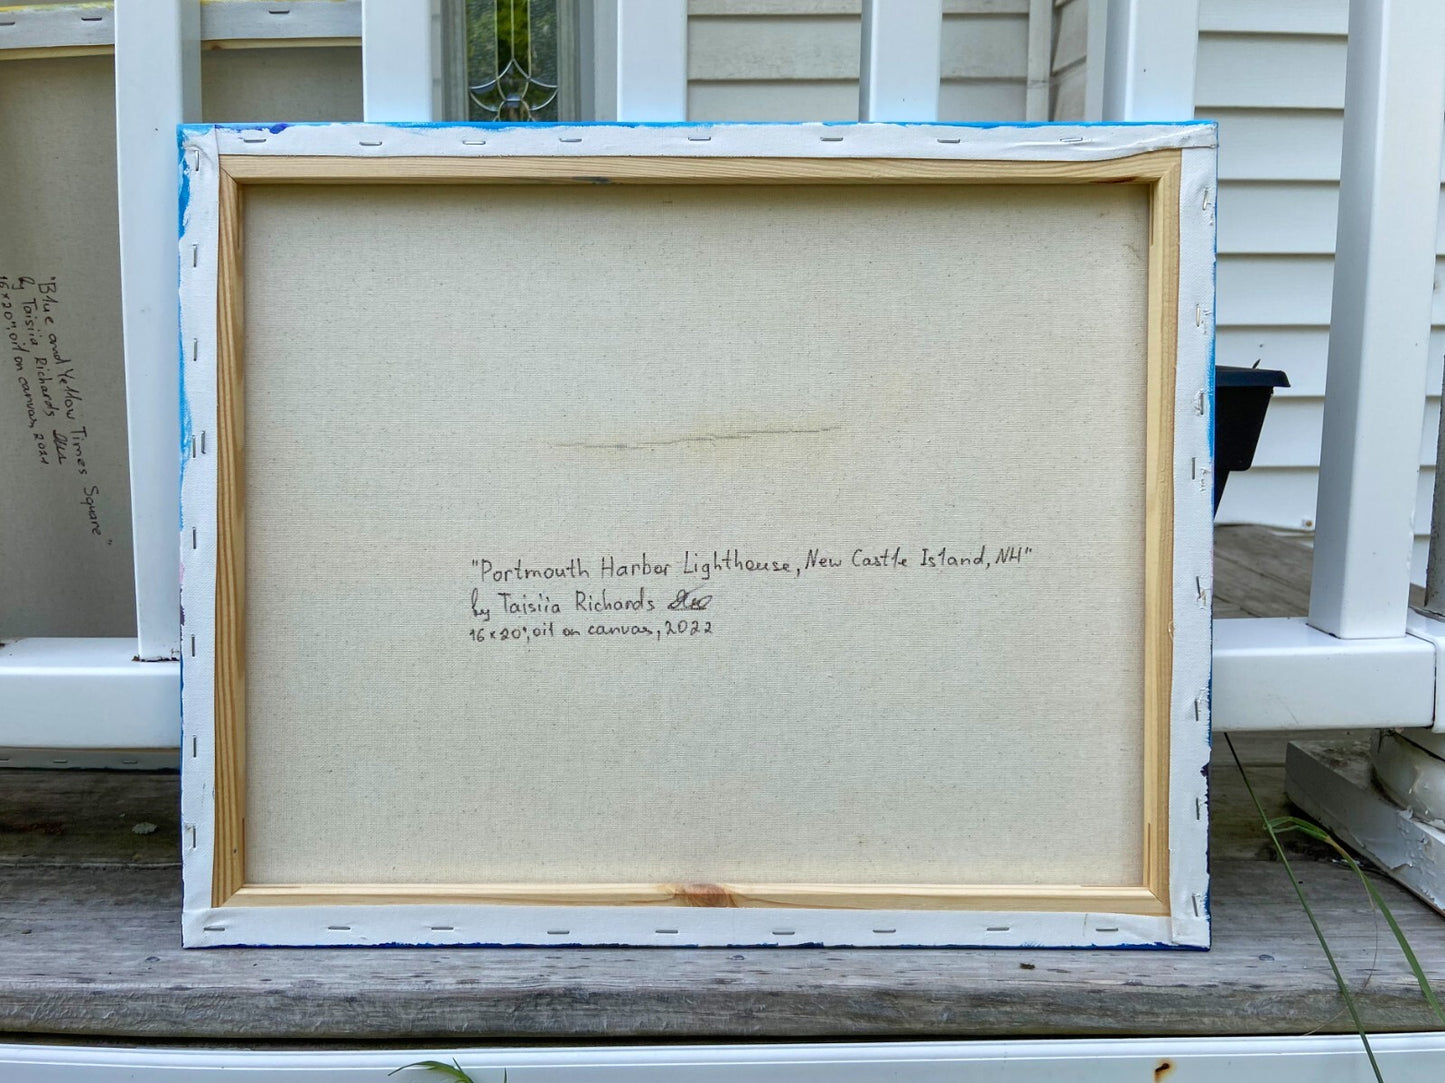 "Blue and Yellow Times Square"
by Taisiia Richards
16×20", oil on canvas, 2021
"Portmouth Harbor Lighthouse, New Castle Island, NH"
by Taisiia Richards
16×20", oil on canvas, 2022